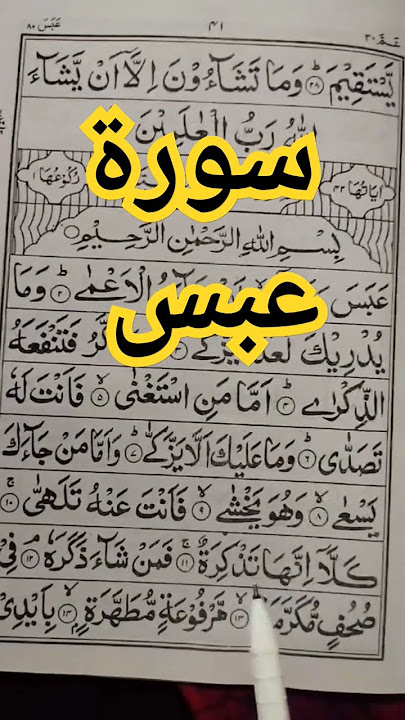 عَمَّ ٣٠
٤١
عَبَسَ ٨٠
يَّسْتَقِيْمَ ؕ۝٢٨ وَمَا تَشَآءُوْنَ اِلَّاۤ اَنْ يَّشَآءَ
اللّٰهُ رَبُّ الْعٰلَمِيْنَ
سورة
اٰيَاتُهَا ٤٢
رُكُوْعُهَا ١
بِسْمِ اللّٰهِ الرَّحْمٰنِ الرَّحِيْمِ
عبس
عَبَسَ الْاَعْمٰى ؕ۝٢ وَمَا
يُدْرِيْكَ فَتَنْفَعَهُ
الذِّكْرٰى ؕ۝٤ اَمَّا مَنِ اسْتَغْنٰى ۙ۝٥ فَاَنْتَ لَهٗ
تَصَدّٰى ؕ۝٦ وَمَا عَلَيْكَ اَلَّا يَزَّكّٰى ؕ۝٧ وَاَمَّا مَنْ جَآءَكَ
يَسْعٰى ۙ۝٨ وَهُوَ يَخْشٰى ۙ۝٩ فَاَنْتَ عَنْهُ تَلَهّٰى ۚ۝١٠
كَلَّاۤ اِنَّهَا تَذْكِرَةٌ ۚ۝١١ فَمَنْ شَآءَ ذَكَرَهٗ ۘ۝١٢ فِيْ
صُحُفٍ ۝١٣ مَّرْفُوْعَةٍ مُّطَهَّرَةٍ ۙ۝١٤ بِاَيْدِيْ